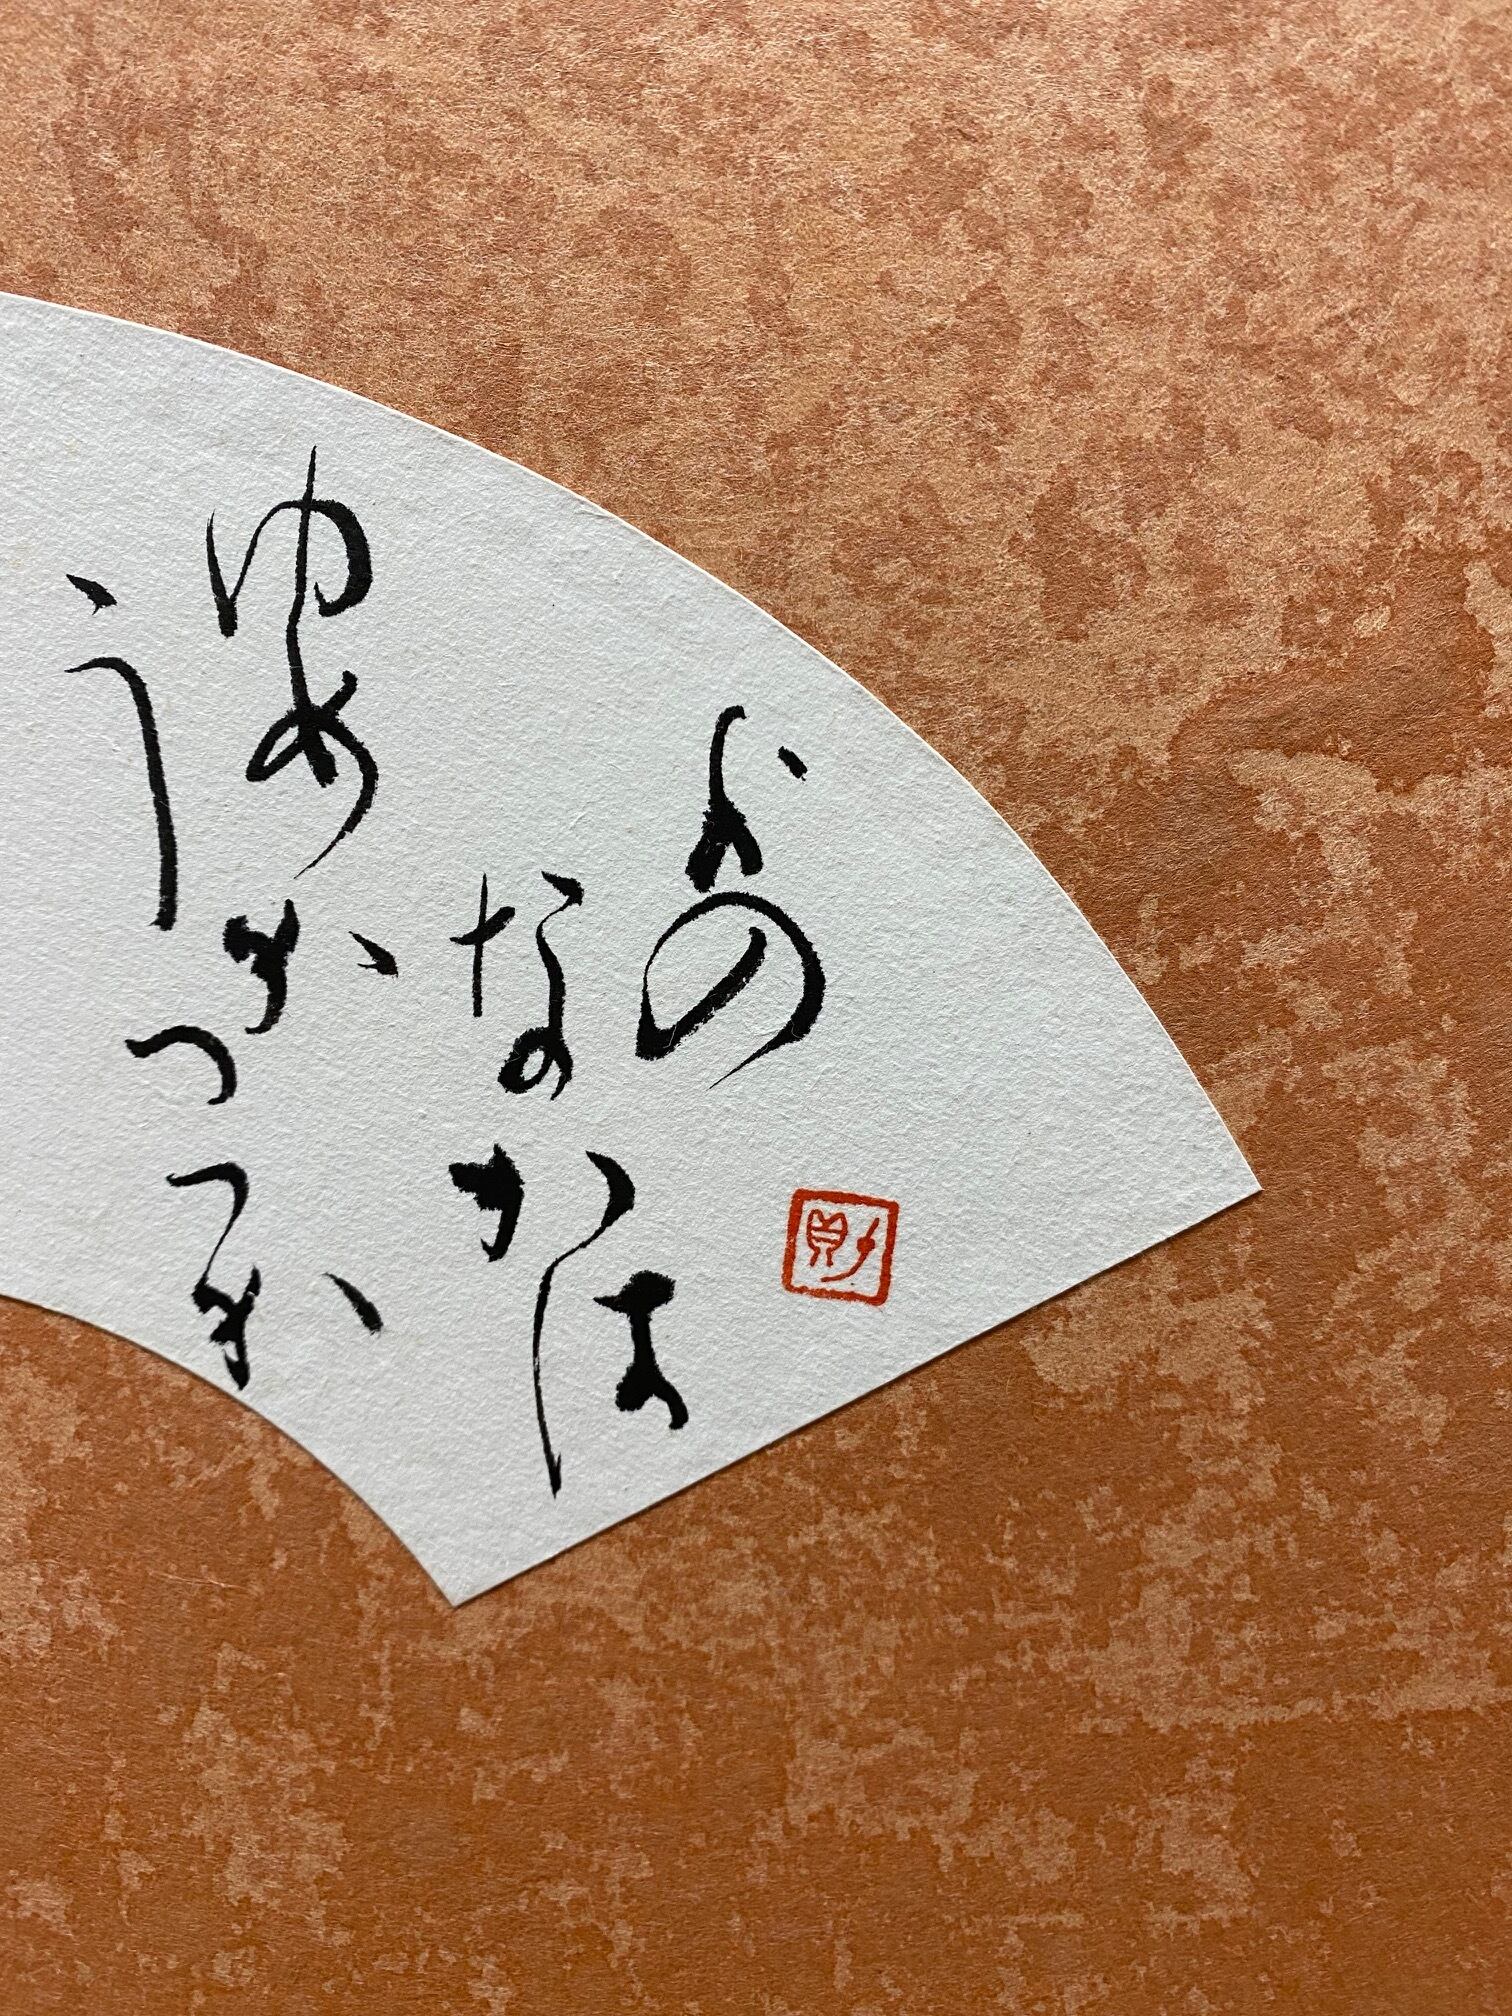 よの
なかは
ゆめか
うつつか
財